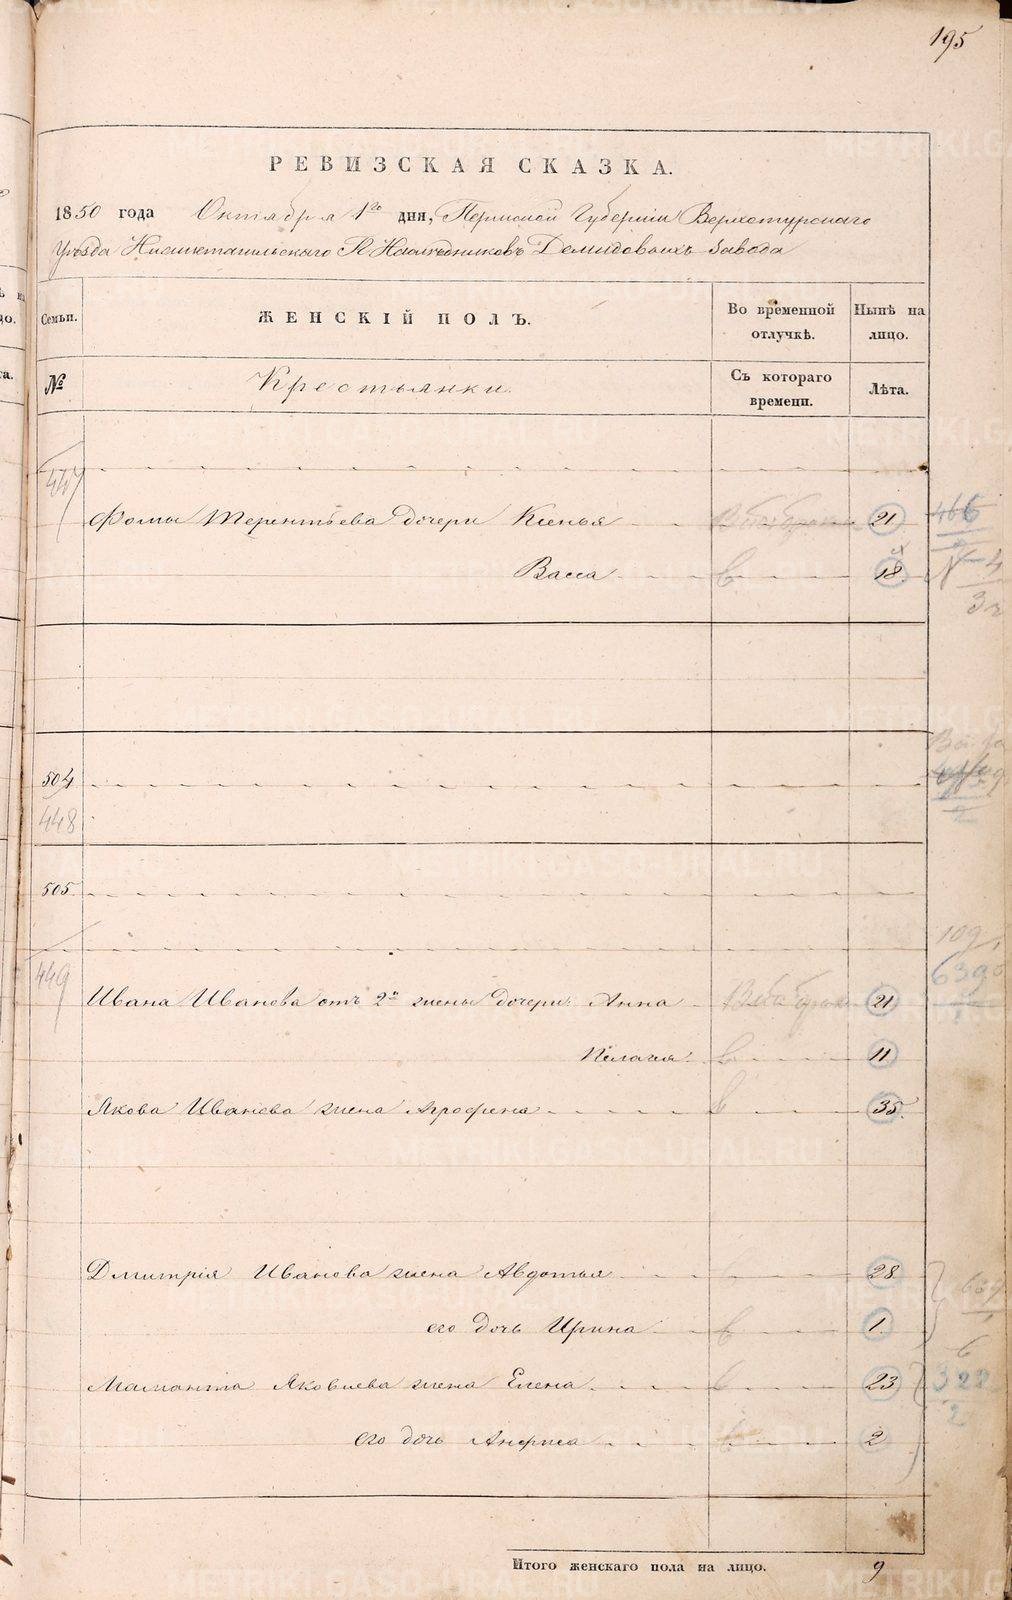 195
РЕВИЗСКАЯ СКАЗКА.
1850 года Октября 1го дня, Пермской Губернии Верхотурскаго
Уезда Нижнетагильскаго Г. Наследниковъ Демидовыхъ Завода
Семьи. ЖЕНСКІЙ ПОЛЪ. Во временной отлучкѣ. Нынѣ на лицо.
№ Крестьянки. Съ котораго времени. Лѣта.
447
Фомы Терентьева дочери Ксенья 21
Васса 18
504
448
505.
449
Ивана Иванова отъ 2й жены дочери Анна 21
Пелагея 11
Якова Иванова жена Агрофена 35.
Дмитрія Иванова жена Авдотья 28
его дочь Ирина 1.
Мамонта Яковлева жена Елена 23
его дочь Анфиса 2
Итого женскаго пола на лицо. 9
METRIKI.GASO-URAL.RU